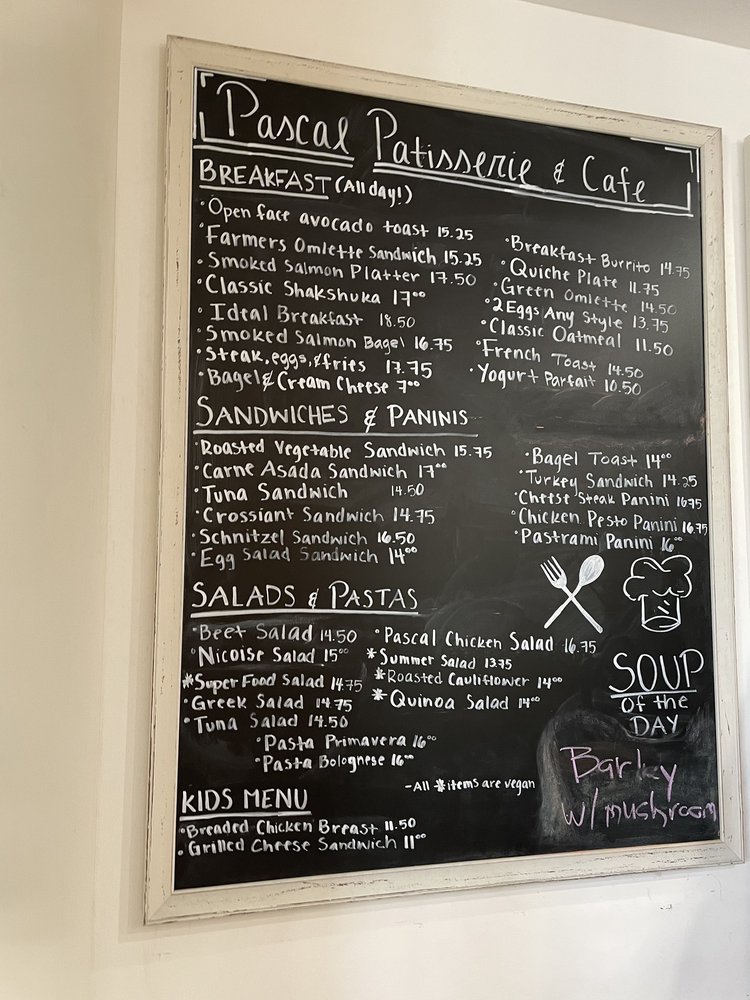 Pascal Patisserie & Cafe
BREAKFAST (All day!)
• Open face avocado toast 15.25
• Farmers Omlette Sandwich 15.25
• Smoked Salmon Platter 17.50
• Classic Shakshuka 17⁰⁰
• Ideal Breakfast 18.50
• Smoked Salmon Bagel 16.75
• Steak, eggs, & fries 17.75
• Bagel & Cream Cheese 7⁰⁰
• Breakfast Burrito 14.75
• Quiche Plate 11.75
• Green Omlette 14.50
• 2 Eggs Any Style 13.75
• Classic Oatmeal 11.50
• French Toast 14.50
• Yogurt Parfait 10.50
SANDWICHES & PANINIS
• Roasted Vegetable Sandwich 15.75
• Carne Asada Sandwich 17⁰⁰
• Tuna Sandwich 14.50
• Crossiant Sandwich 14.75
• Schnitzel Sandwich 16.50
• Egg Salad Sandwich 14⁰⁰
• Bagel Toast 14⁰⁰
• Turkey Sandwich 14.25
• Cheese Steak Panini 16.75
• Chicken Pesto Panini 16.75
• Pastrami Panini 16⁰⁰
SALADS & PASTAS
• Beet Salad 14.50
• Nicoise Salad 15⁰⁰
* Super Food Salad 14.75
• Greek Salad 14.75
• Tuna Salad 14.50
• Pascal Chicken Salad 16.75
* Summer Salad 13.75
* Roasted Cauliflower 14⁰⁰
* Quinoa Salad 14⁰⁰
• Pasta Primavera 16⁰⁰
• Pasta Bolognese 16⁰⁰
- All * items are vegan
KIDS MENU
• Breaded Chicken Breast 11.50
• Grilled Cheese Sandwich 11⁰⁰
SOUP
Of the
DAY
Barley
w/ mushroom